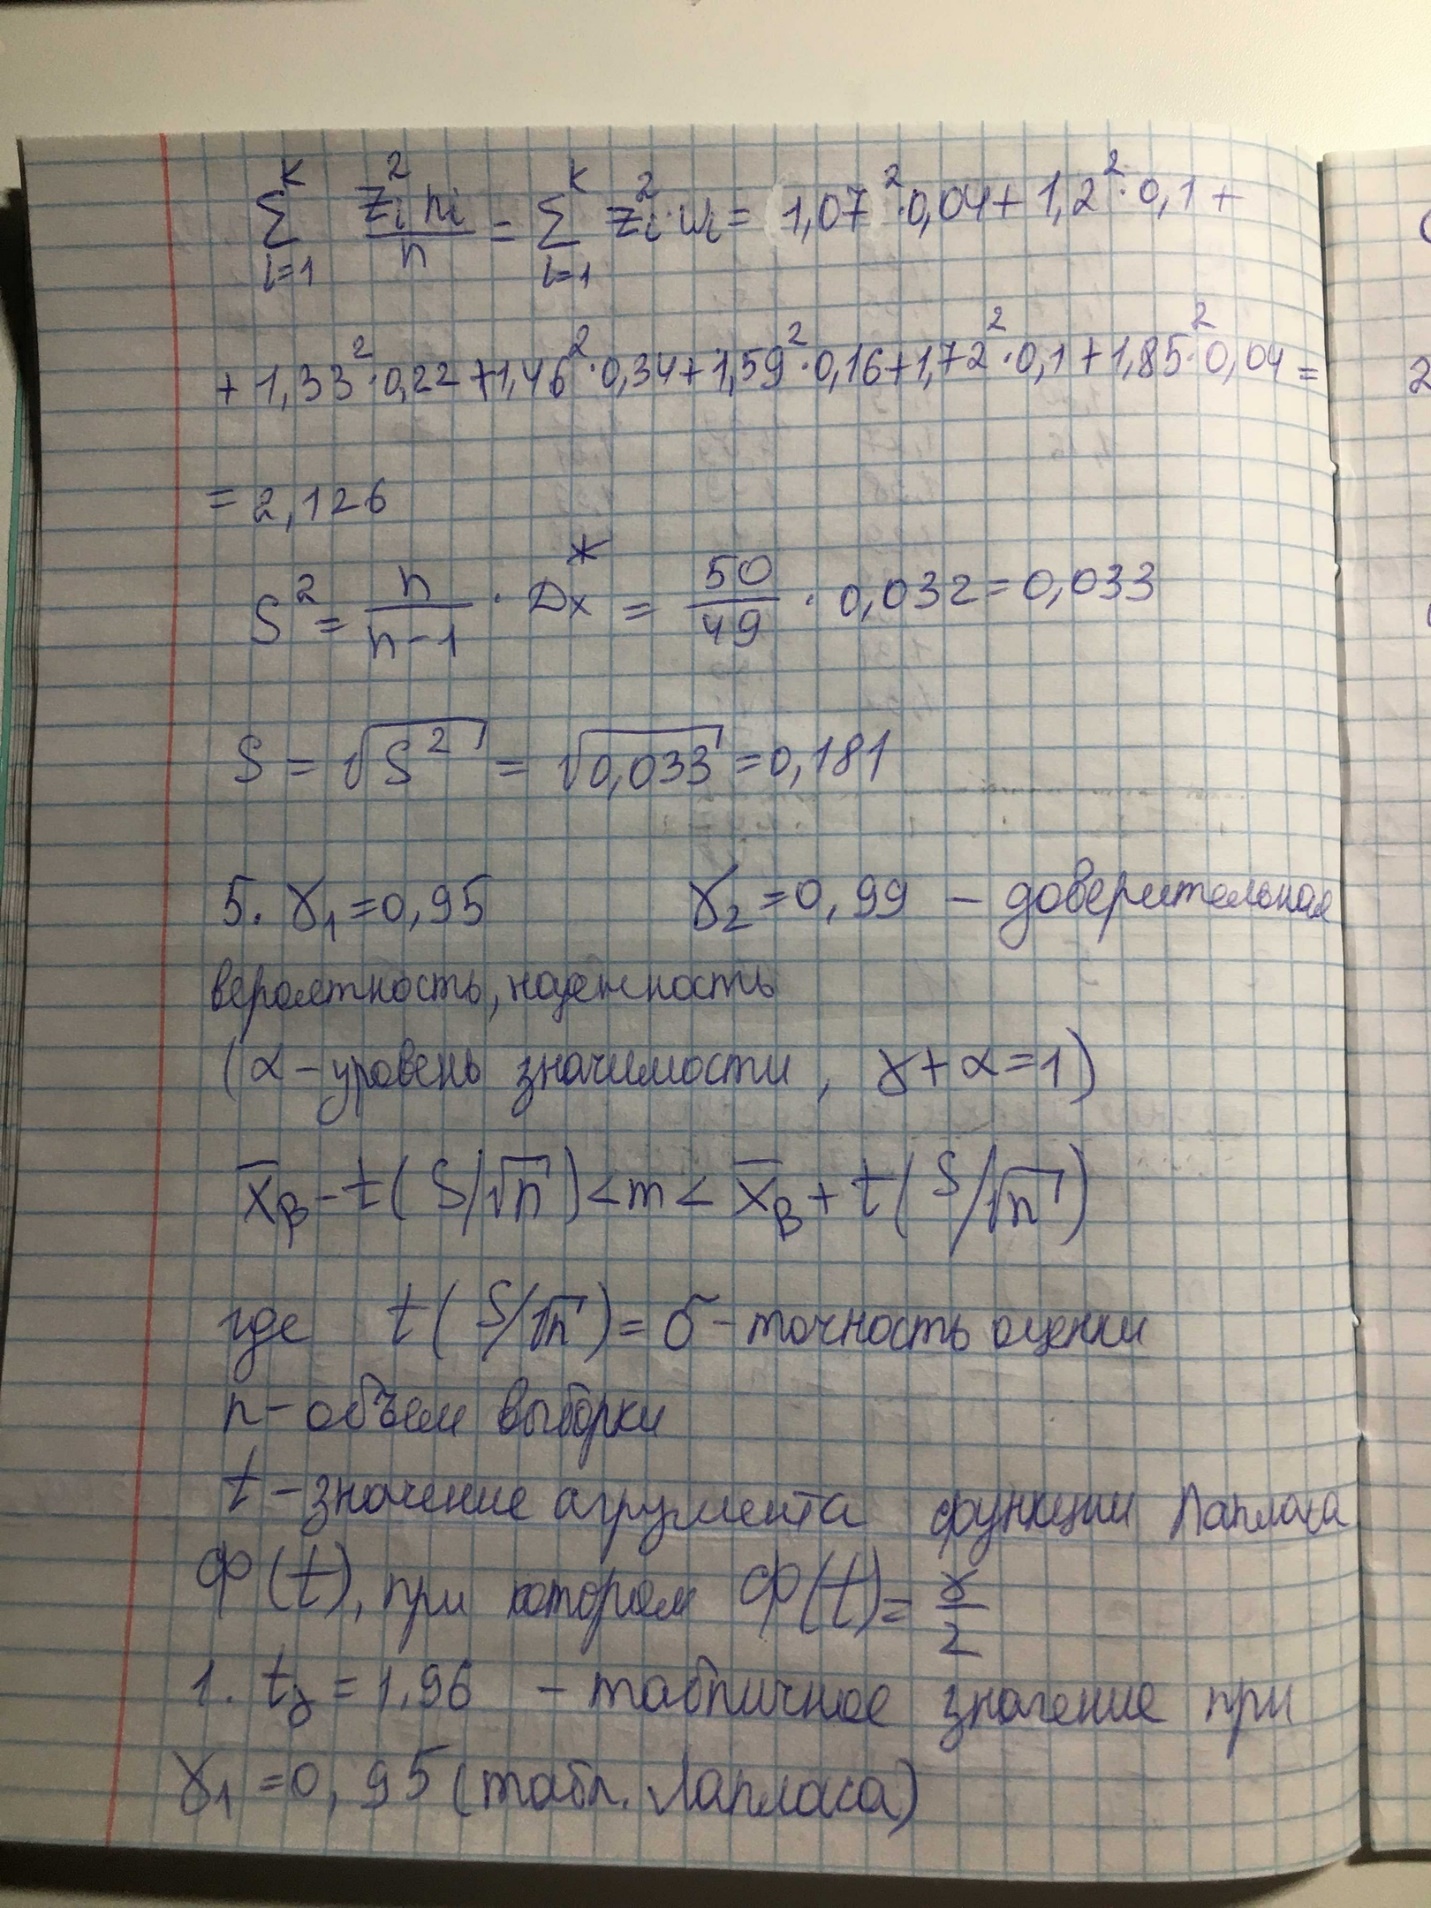 ∑_{i=1}^{K} z_i² n_i / n = ∑_{i=1}^{K} z_i² · w_i = 1,07² · 0,04 + 1,2² · 0,1 +
+ 1,33² · 0,22 + 1,46² · 0,34 + 1,59² · 0,16 + 1,72² · 0,1 + 1,85² · 0,04 =
= 2,126
S² = n / (n-1) · Dx* = 50/49 · 0,032 = 0,033
S = √S² = √0,033 = 0,181
5. γ₁ = 0,95 γ₂ = 0,99 – доверительная
вероятность, надежность
(α – уровень значимости, γ + α = 1)
x̄_В – t( S/√n ) < m < x̄_В + t( S/√n )
где t( S/√n ) = σ – точность оценки
n – объем выборки
t – значение агрумента функции Лапласа
Ф(t), при котором Ф(t) = γ/2
1. t_γ = 1.96 – табличное значение при
γ₁ = 0,95 (табл. Лапласа)